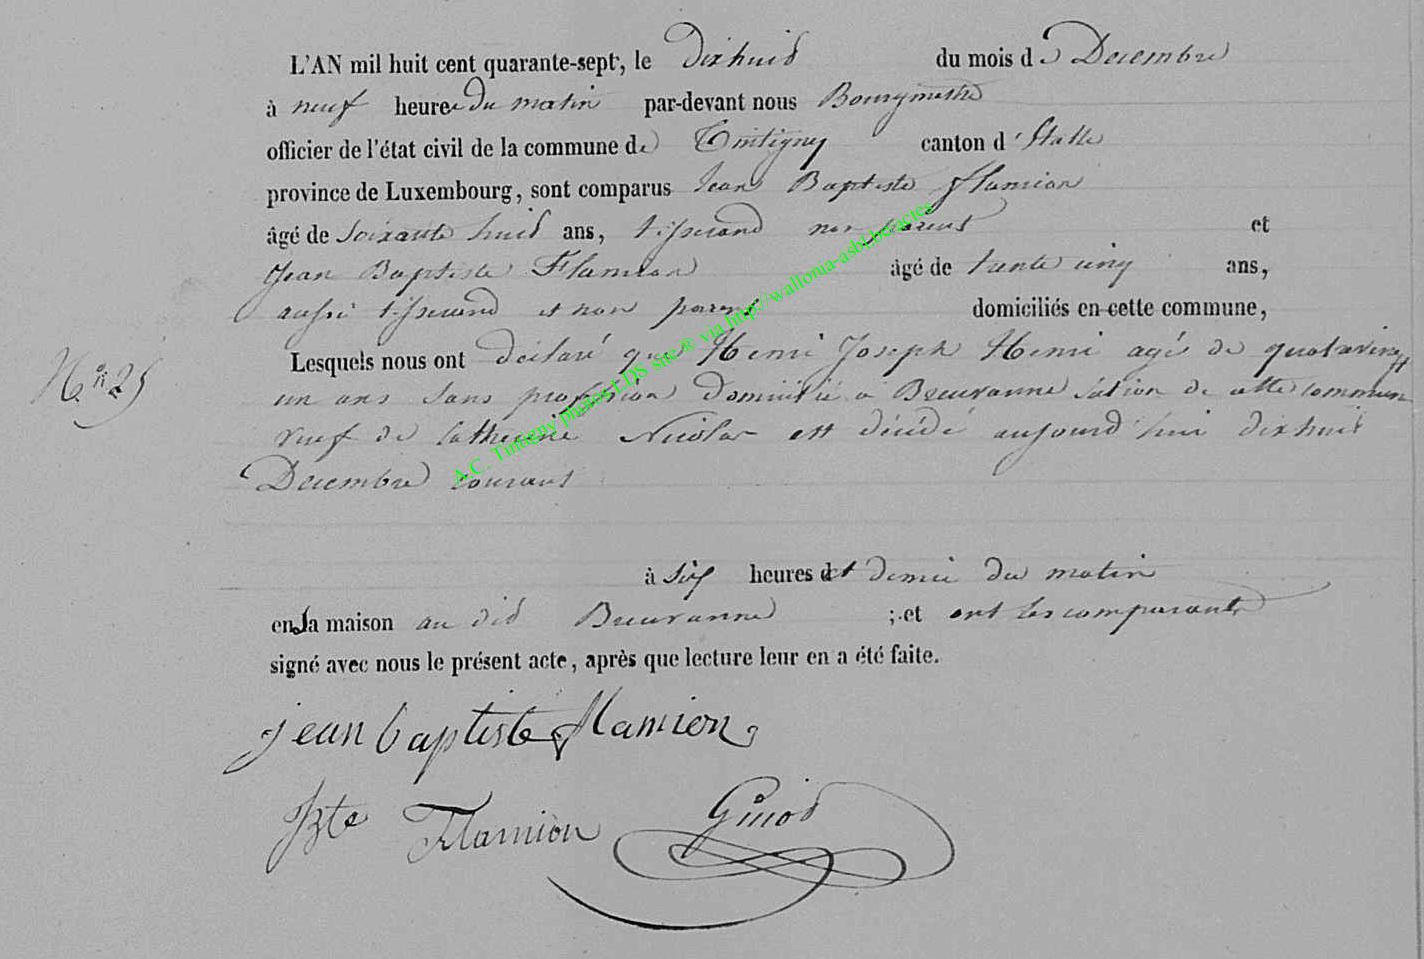 L'AN mil huit cent quarante-sept, le dixhuit du mois de Decembre
à neuf heure du matin par-devant nous Bourgmestre
officier de l'état civil de la commune de Tintigny canton d'Etalle
province de Luxembourg, sont comparus Jean Baptiste Flamion
âgé de soixante huit ans, tisserand non parent et
Jean Baptiste Flamion âgé de trente cinq ans,
aussi tisserand et non parent domiciliés en cette commune,
N° 25
Lesquels nous ont déclaré que Henri Joseph Henri agé de quatrevingt
un ans sans profession Domicilié a Breuvanne section de cette commune
veuf de Catherine Nicolas est décédé aujourd'hui dixhuit
Decembre courant
à six heures et demie du matin
en la maison au dit Breuvanne ; et ont les comparants
signé avec nous le présent acte, après que lecture leur en a été faite.
jean baptiste flamion
Bte Flamion
A.C. Tintigny photos LDS site ® via http://wallonia-asbl.be/actes